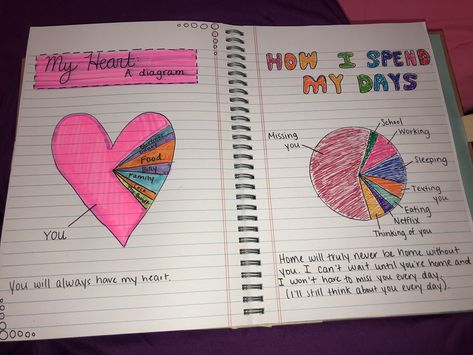 My Heart:
A diagram
Food
Billy
Family
YOU
You will always have my heart.
HOW I SPEND
MY DAYS
Missing
you
School
Working
Sleeping
Texting
you
Eating
Netflix
Thinking of you
Home will truly never be home without
you. I can't wait until you're home and
I won't have to miss you every day.
(I'll still think about you every day).